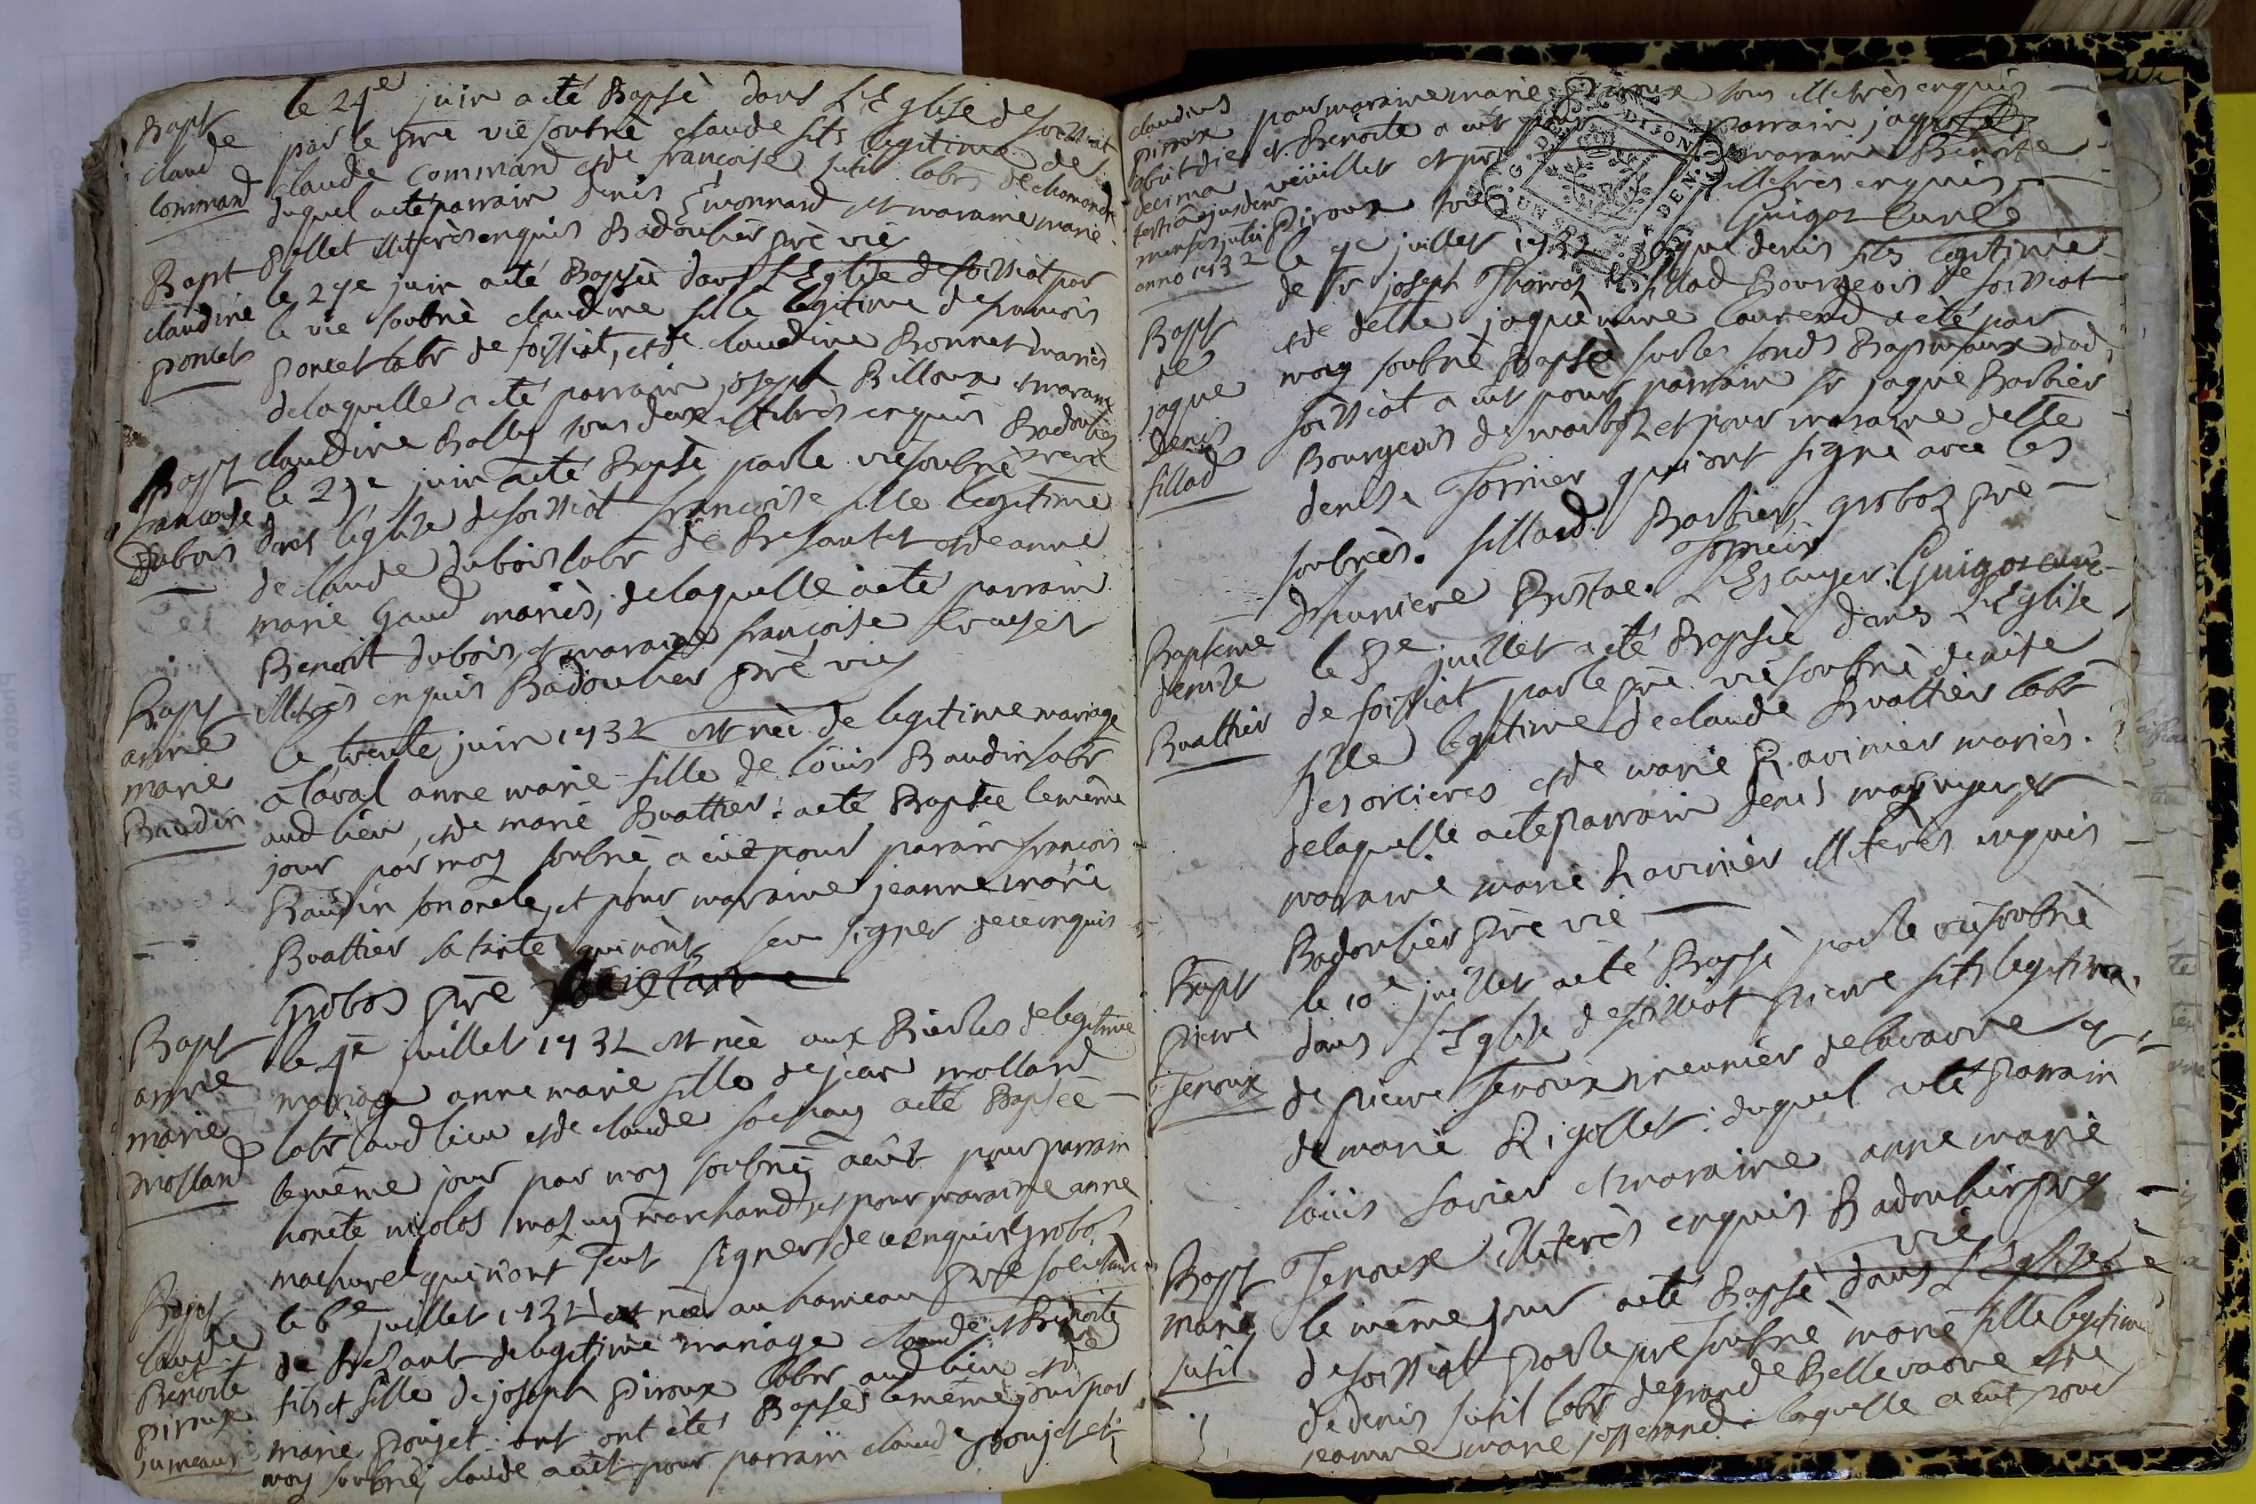 Bapt
de
claud
Command
le 24e juin a été Bapsé dans L'Eglise de foissiat
par le pre vic soubné claude fils legitime de
claude Command et de françoise sutil labr de chamonde
duquel a été parrain denis Emonnard et maraine marie
pellet illiterés enquis Badoulier pre vic
Bapt
claudine
poncet
le 29e juin a été Bapsée dans L'Eglise de foissiat par
le vic soubné claudine fille legitime de francois
poncet labr de foissiat, et de claudine Bonnet mariés
de laquelle a été parrain joseph Billoux et maraine
claudine Bally tous deux illiterés enquis Badoulier
pre vic
Bapt
francoise
Dubois
le 29e juin a été Bapsé par le vic soubné
dans l'église de foissiat francoise fille legitime
de claude dubois labr de Bresant et de anne
marie Gaud mariés, de laquelle a été parrain
Benoit dubois, et maraine francoise
illiterés enquis Badoulier pré vic
Bapt
anne
marie
Baudin
le trente juin 1732 est née de legitime mariage
a laval anne marie fille de louis Baudin labr
aud lieu, et de marie Buattier: a été Bapsée le même
jour par moy soubné, a eüe pour parain francois
Baudin son oncle, et pour maraine jeanne marie
Buattier sa tante qui n'ont seu signer de ce enquis
Grobos pre
Bapt
anne
marie
mollard
le 4e juillet 1732 est née aux Bioles de legitime
mariage anne marie fille de jean mollard
labr aud lieu et de claude sochay a été Bapsée
le même jour par moy soubné, a eût pour parrain
honete nicolas mazuy marchand, et pour maraine anne
machurel qui n'ont seut signer de ce enquis Grobos
pre
Bapt
claude
et
Benoite
piroux
jumeaux
le 6e juillet 1732 est née au hameau
de Brezant de legitime mariage claude et Benoite
fils et fille de joseph piroux labr aud lieu et de
marie poujet ont été Bapsés le même jour par
moy soubné, claude a eût pour parrain claude poujet et
claudius
piroux
obiit die
decima
tertia ejusdem
mensis julii
anno 1732
pour maraine marie piroux tous illiterés enquis
et Benoite a eût pour parrain jaque
veüillet et pr maraine Benoite
piroux illiterés enquis
Guigoz Curé
Bapt
de
jaque
denis
fillad
le 7e juillet 1732 jaque denis fils legitime
de sr joseph Thomaz fillad Bourgeois de foissiat
et de delle jaquemine laurend a été par
moy soubné Bapsé sur les fonds Baptismaux dud
foissiat a eüt pour parrain sr jaque Barbier
Bourgeois de marboz et pour maraine delle
denise Tornier qui ont signé avec les
soubnés. fillad. Barbier, grobos pre
Tornier
Guigoz curé
Bapteme
denise
Buattier
le 8e juillet a été Bapsée dans L'Eglise
de foissiat par le pre vic soubné denise
fille legitime de claude Buattier labr
des orcieres et de marie Ravinier mariés.
de laquelle a été parrain denis mazuyer et
maraine marie Ravinier illiterés enquis
Badoulier pre vic
Bapt
pierre
Teroux
le 10e juillet a été Bapsé par le vic soubné
dans L'Eglise de foissiat pierre fils legitime
de pierre Teroux meunier de lavavre et
de marie Rigollet: duquel a été parrain
louis sarier et maraine anne marie
Teroux illiterés enquis Badoulier pre
vic
Bapt
marie
sutil
le même jour a été Bapsé dans L'Eglise
de foissiat par le pre soubné marie fille legitime
de denis sutil labr de grande Bellevavre et de
jeanne marie josserand. laquelle a eüt pour